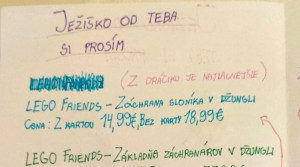 JEŽIŠKO OD TEBA
SI PROSÍM
(Z DRÁČIKU JE NAJVALNEJŠIE)
LEGO FRIENDS – ZÁCHRANA SLONÍKA V DŽUNGLI
CENA: Z KARTOU 14,99€, BEZ KARTY 18,99€
LEGO FRIENDS – ZÁKLADŇA ZÁCHRANÁROV V DŽUNGLI